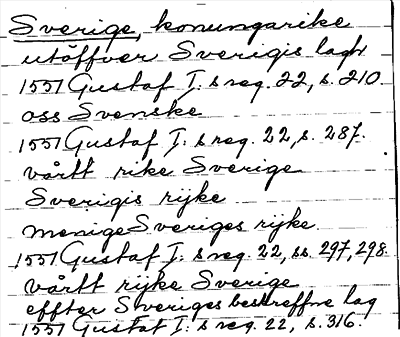 Sverige, konungarike
utöffver Sverigis lagh
1551 Gustaf I: s reg. 22, s. 210
oss Svenske
1551 Gustaf I: s reg. 22, s. 287.
vårtt rike Sverige
Sverigis rijke
menige Sveriges rijke
1551 Gustaf I: s reg. 22, ss. 297, 298.
vårtt rijke Sverige
effter Sveriges beskreffne lag
1551 Gustaf I: s reg. 22, s. 316.